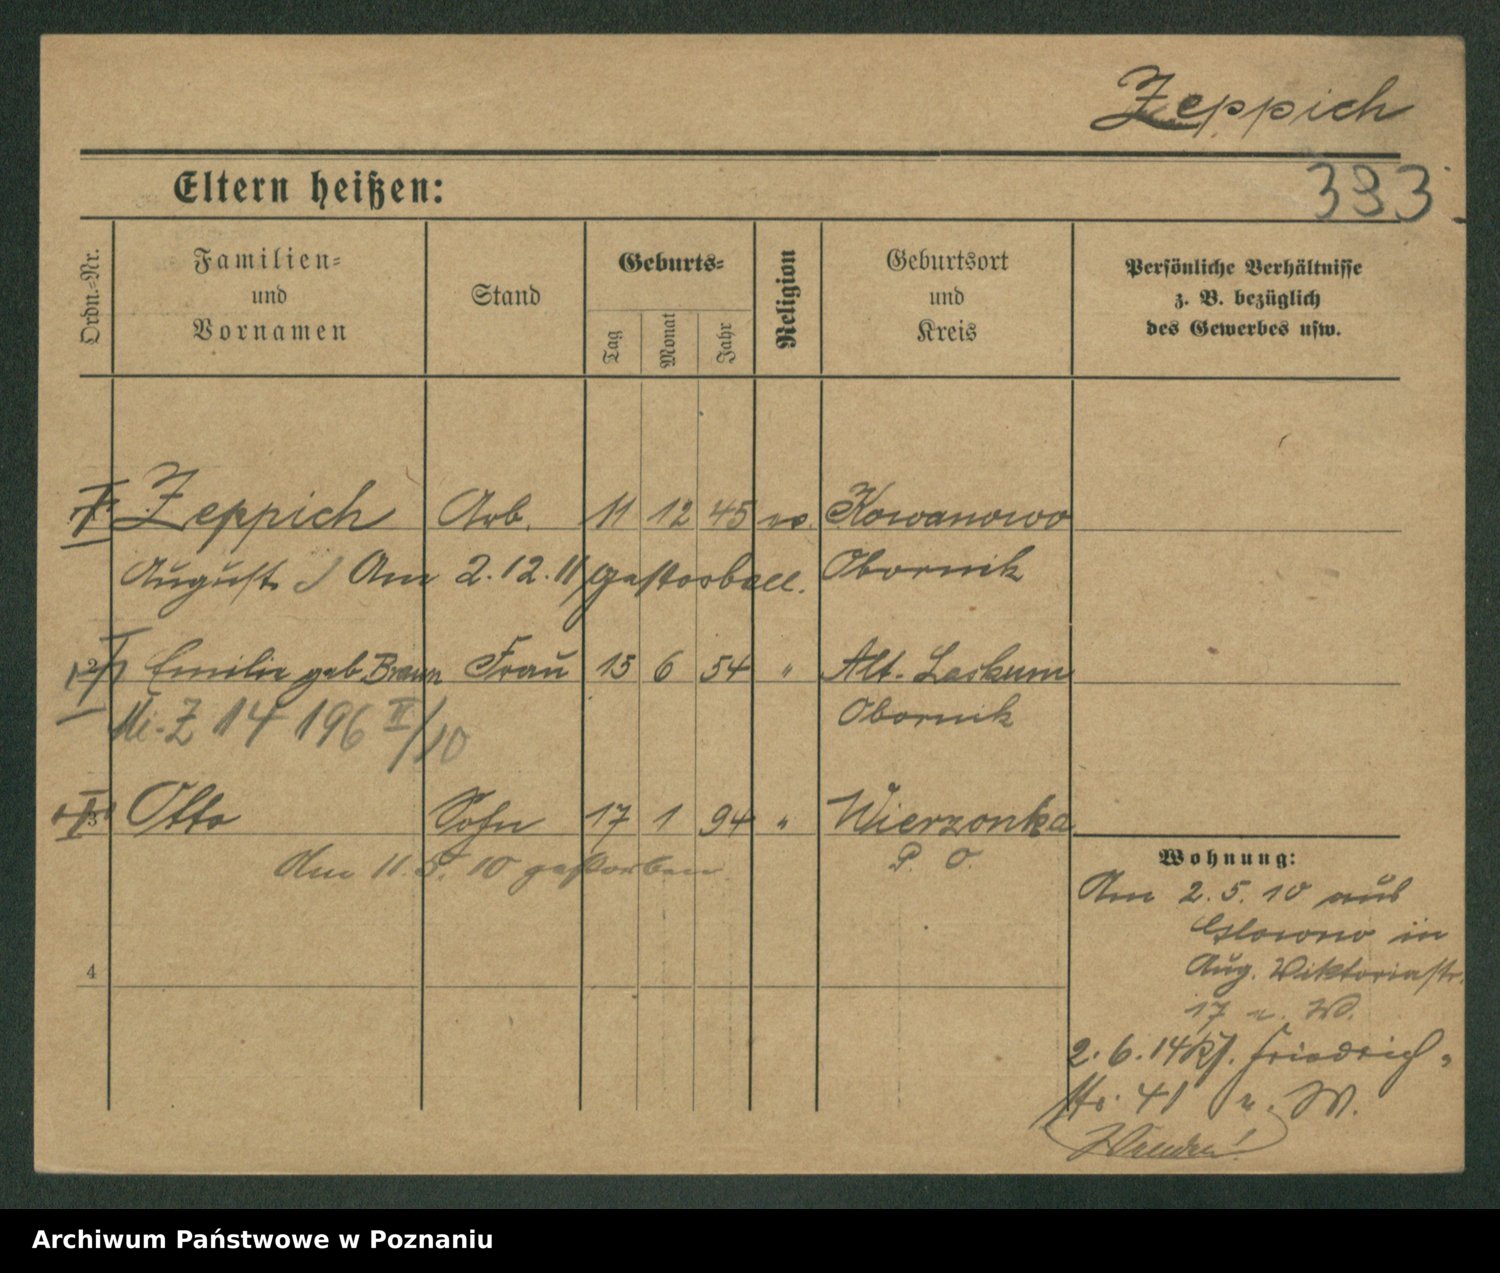 Zeppich
Eltern heißen:
333.
Ordn.-Nr.
Familien-
und
Vornamen
Stand
Geburts-
Tag
Monat
Jahr
Religion
Geburtsort
und
Kreis
Persönliche Verhältnisse
z. B. bezüglich
des Gewerbes usw.
Zeppich Arb. 11 12 45 ev. Kowanowo
August Am 2.12.11 gestorben. Obornik
2 Emilie geb. Braun Frau 15 6 54 " Alt-
Obornik
Z 14 196 II/10
3 Otto Sohn 17 1 94 " Wierzonka
Am 11.5.10 gestorben P. O.
4
Wohnung:
Am 2.5.10 aus
Glowno in
Aug. Viktoriastr.
17 n. W.
2.6.14 Friedrich-
str. 41 n. W.
Archiwum Państwowe w Poznaniu